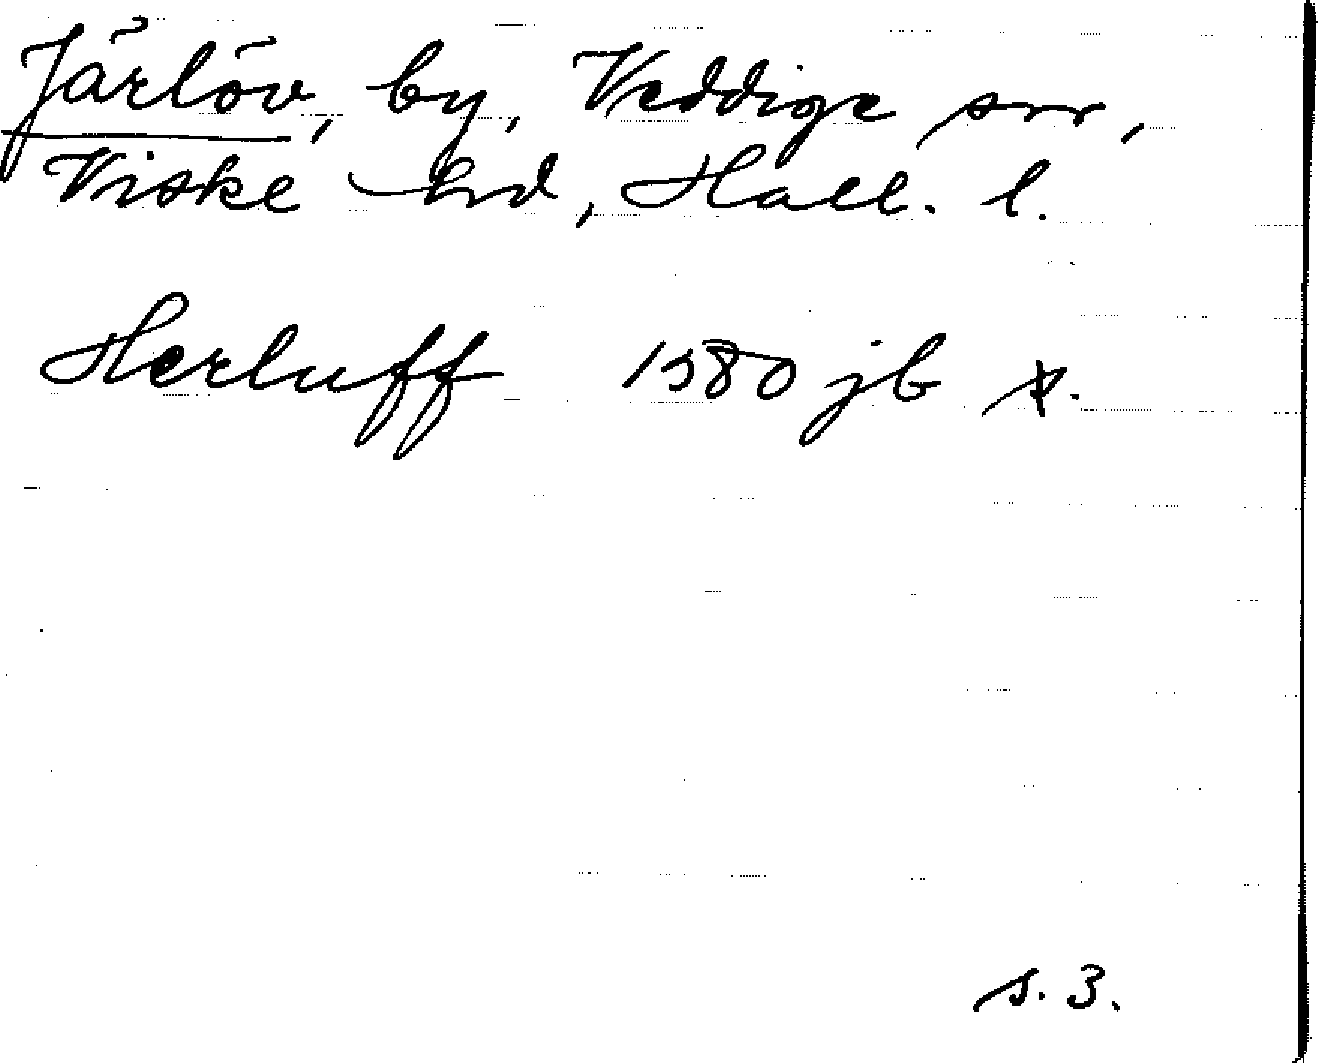 Järlöv, by, Veddige sn,
Viske hd, Hall. l.
Herluff 1580 jb
s. 3.